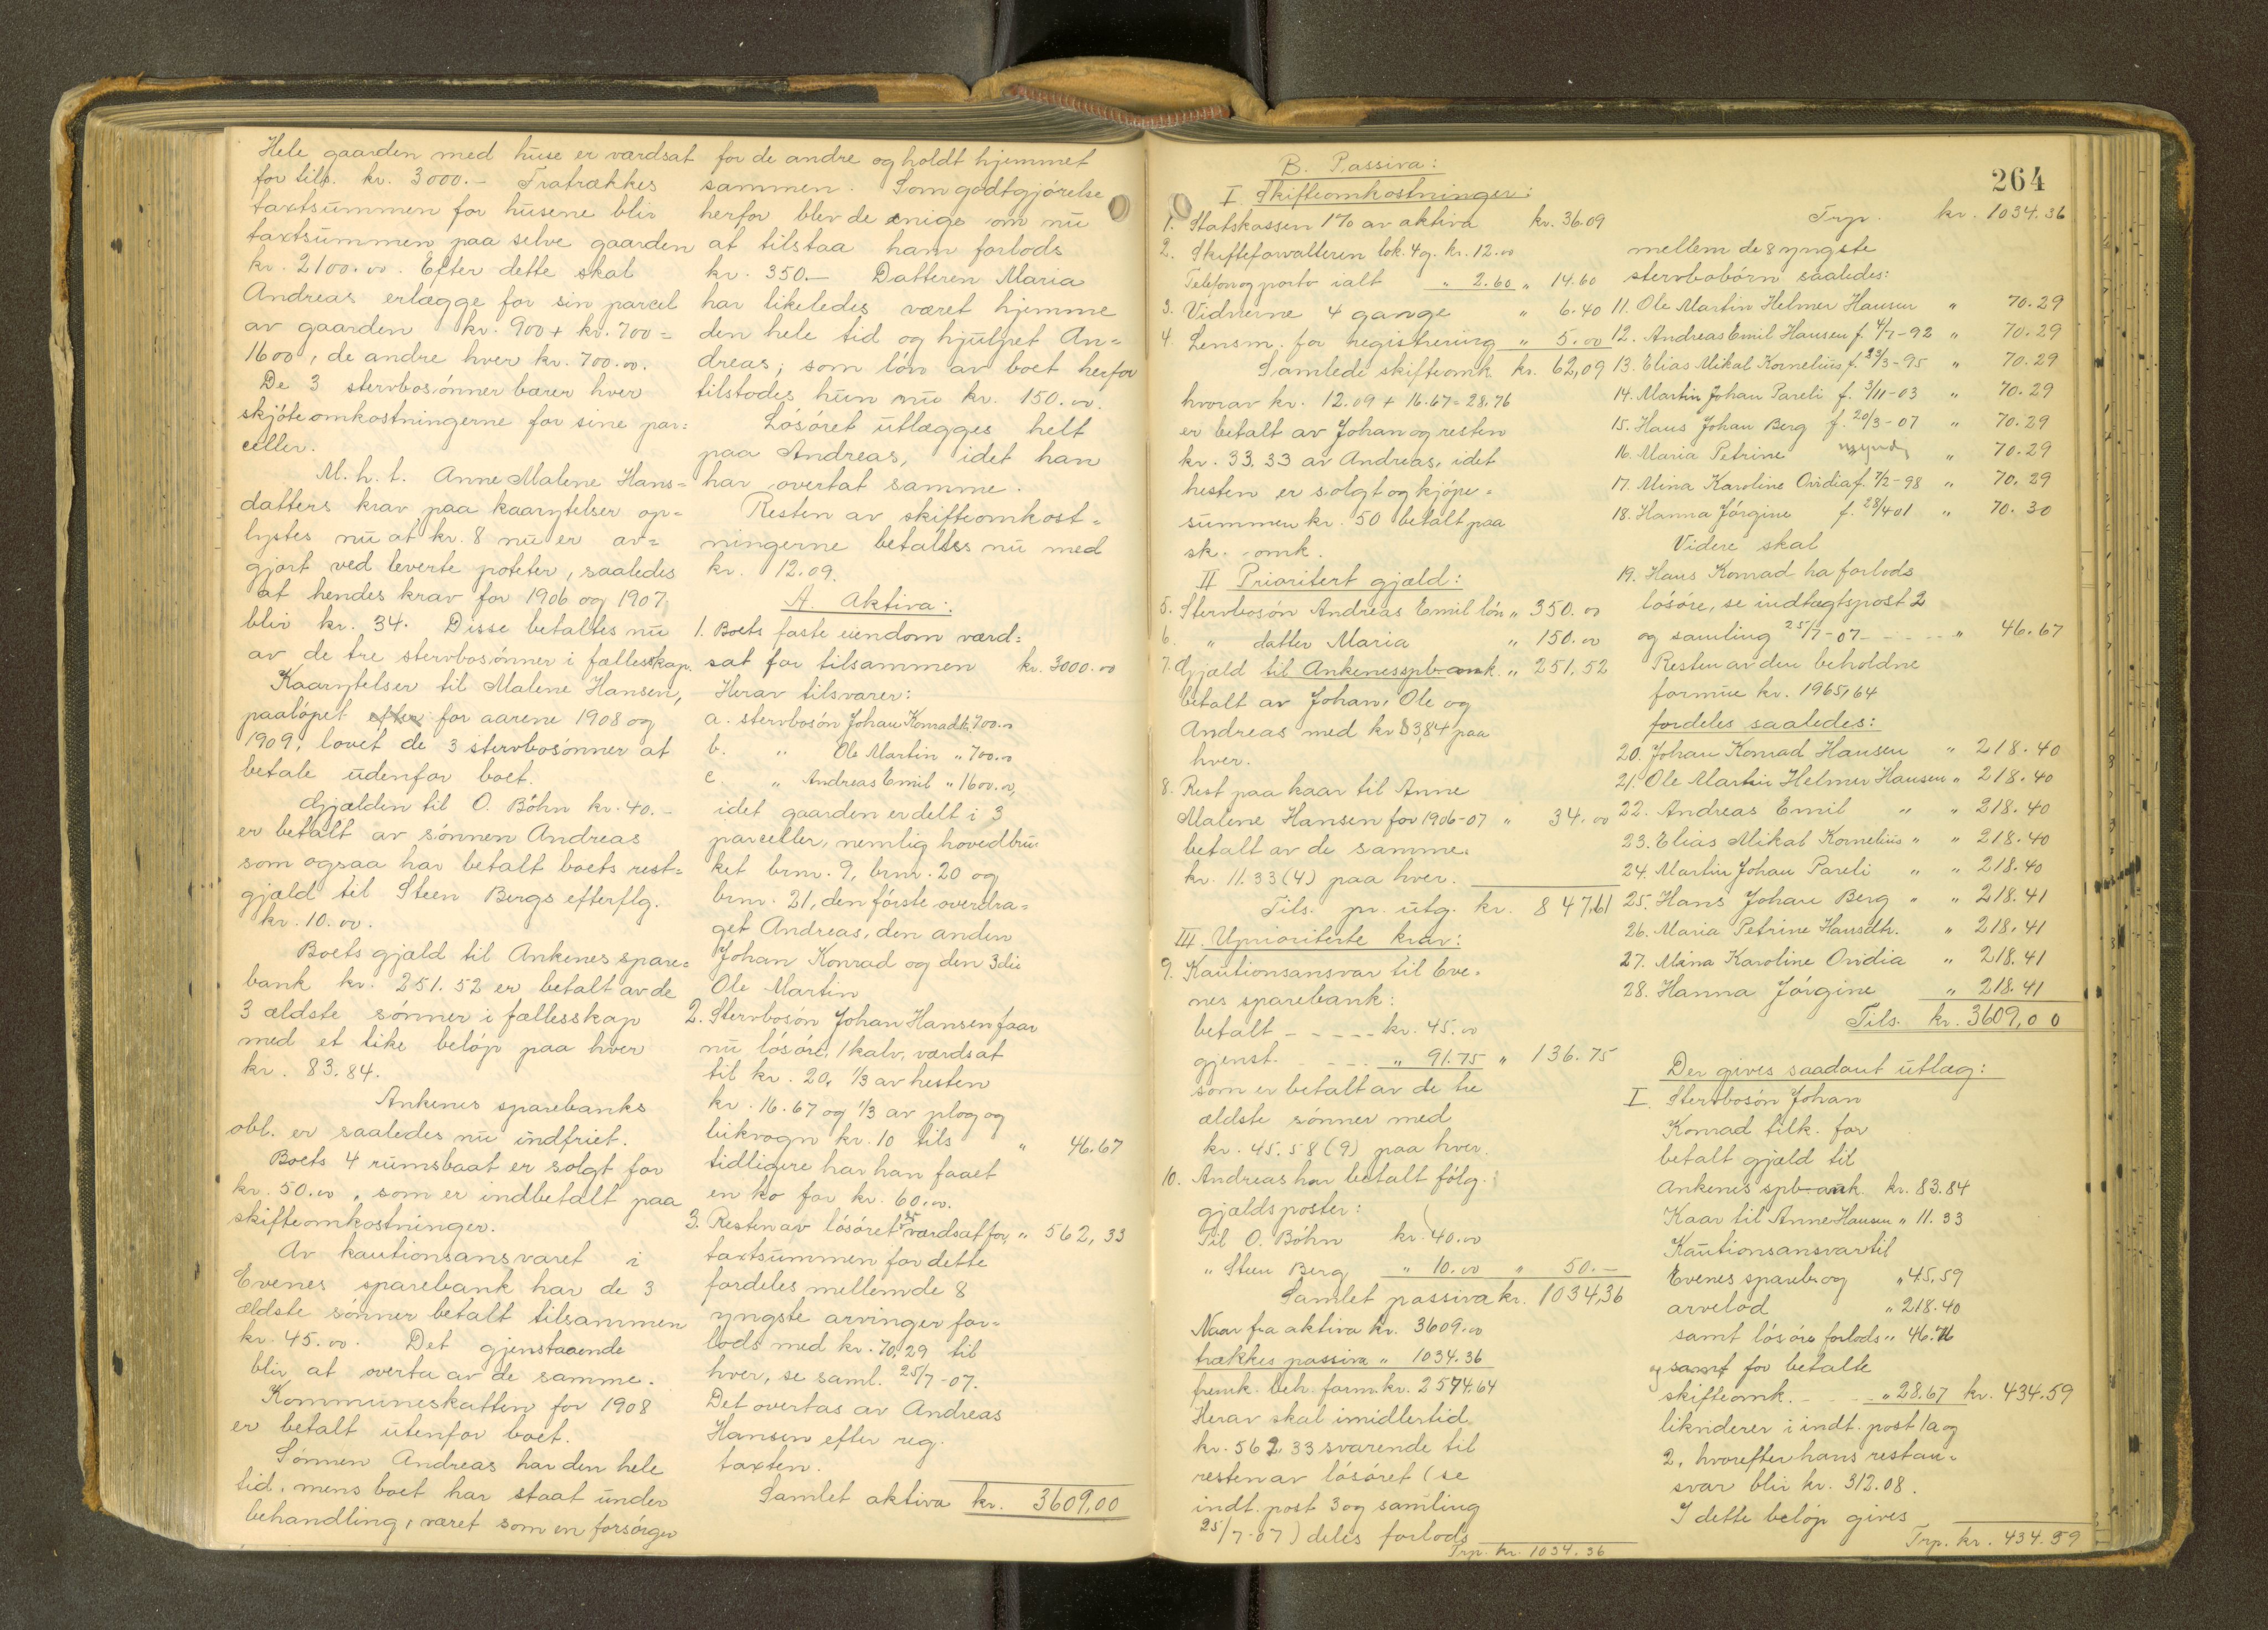 Hele gaarden med huse er værdsat
for tils. kr. 3000.- Fratrækkes
taxtsummen for husene blir
taxtsummen paa selve gaarden
kr. 2100.00. Efter dette skal
Andreas erlægge for sin parcel
av gaarden kr. 900 + kr. 700 =
1600, de andre hver kr. 700.00.
De 3 stervbosønner bærer hver
skjøteomkostningerne for sine par=
celler.
M. h. t. Anne Malene Hans=
datters krav paa kaarytelser op=
lystes nu at kr. 8 nu er av=
gjort ved leverte poteter, saaledes
at hendes krav for 1906 og 1907
blir kr. 34. Disse betaltes nu
av de tre stervbosønner i fællesskap.
Kaarytelser til Malene Hansen,
paaløpet efter for aarene 1908 og
1909, lovet de 3 stervbosønner at
betale udenfor boet.
Gjælden til O. Böhn kr. 40.-
er betalt av sønnen Andreas
som ogsaa har betalt boets rest=
gjæld til Steen Bergs efterflg.
kr. 10.00.
Boets gjæld til Ankenes spare=
bank kr. 251.52 er betalt av de
3 ældste sønner i fællesskap
med et like beløp paa hver
kr. 83.84.
Ankenes sparebanks
obl. er saaledes nu indfriet.
Boets 4 rumsbaat er solgt for
kr. 50.00, som er indbetalt paa
skifteomkostninger.
Av kautionsansvaret i
Evenes sparebank har de 3
ældste sønner betalt tilsammen
kr. 45.00. Det gjenstaaende
blir at overta av de samme.
Kommuneskatten for 1908
er betalt utenfor boet.
Sønnen Andreas har den hele
tid, mens boet har staat under
behandling, været som en forsørger
for de andre og holdt hjemmet
sammen. Som godtgjørelse
herfor blev de enige om nu
at tilstaa ham forlods
kr. 350.- Datteren Maria
har likeledes været hjemme
den hele tid og hjulpet An=
dreas; som løn av boet herfor
tilstodes hun nu kr. 150.00.
Løsøret utlægges helt
paa Andreas, idet han
har overtat samme.
Resten av skifteomkost=
ningerne betaltes nu med
kr. 12.09.
A. Aktiva:
1. Boets faste eiendom værd=
sat for tilsammen kr. 3000.00
Herav tilsvarer:
a. stervbosøn Johan Konrad kr. 700.00
b. " Ole Martin " 700.00
c. " Andreas Emil " 1600.00,
idet gaarden er delt i 3
parceller, nemlig hovedbru=
ket brnr. 9, brnr. 20 og
brnr. 21, den første overdra=
get Andreas, den anden
Johan Konrad og den 3die
Ole Martin
2. Stervbosøn Johan Hansen faar
nu løsøre, 1 kalv, værdsat
til kr. 20, 1/3 av hesten
kr. 16.67 og 1/3 av plog og
likvogn kr. 10 tils " 46.67
tidligere har han faaet
en ko for kr. 60.00.
3. Resten av løsøret er værdsat for " 562,33
taxtsummen for dette
fordeles mellem de 8
yngste arvinger for=
lods med kr. 70,29 til
hver, se saml. 25/7-07.
Det overtas av Andreas
Hansen efter reg.
taxten.
Samlet aktiva kr. 3609,00
264
B. Passiva:
I Skifteomkostninger:
1. Statskassen 1% av aktiva kr. 36.09
2. Skifteforvalteren lok. 4 g. kr. 12.00
Telefon og porto ialt " 2.60 " 14.60
3. Vidnerne 4 gange " 6.40
4. Lensm. for registrering " 5.00
Samlede skifteomk. kr. 62,09
hvorav kr. 12.09 + 16.67 = 28.76
er betalt av Johan og resten
kr. 33.33 av Andreas, idet
hesten er solgt og kjøpe=
summen kr. 50 betalt paa
sk.-omk.
II Prioritert gjæld:
5. Stervbosøn Andreas Emil løn " 350.00
6. " datter Maria " 150.00
7. Gjæld til Ankenes spbank. " 251,52
betalt av Johan, Ole og
Andreas med kr 83,84 paa
hver.
8. Rest paa kaar til Anne
Malene Hansen for 1906-07 " 34.00
betalt av de samme.
kr. 11.33 (4) paa hver.
Tils. pr. utg. kr. 847,61
III. Uprioriterte krav:
9. Kautionsansvar til Eve=
nes sparebank:
betalt - - - - kr. 45.00
gjenst. - - - " 91.75 " 136.75
som er betalt av de tre
ældste sønner med
kr. 45.58 (9) paa hver.
10. Andreas har betalt følg.
gjældsposter:
Til O. Böhn kr. 40.00
" Steen Berg " 10.00 " 50.-
Samlet passiva kr. 1034,36
Naar fra aktiva kr. 3609.00
trækkes passiva " 1034.36
fremk. beh. form. kr. 2574.64
Herav skal imidlertid
kr. 562,33 svarende til
resten av løsøret (se
indt. post 3 og samling
25/7-07) deles forlods
Trp. kr. 1034.36
Trp. kr. 1034.36
mellem de 8 yngste
stervbobørn saaledes:
11. Ole Martin Helmer Hansen " 70.29
12. Andreas Emil Hansen f. 4/7-92 " 70.29
13. Elias Mikal Kornelius f. 23/3-95 " 70.29
14. Martin Johan Pareli f. 3/11-03 " 70.29
15. Hans Johan Berg f. 20/3-07 " 70.29
16. Maria Petrine " 70.29
17. Mina Karoline Ovidia f. 7/2-98 " 70.29
18. Hanna Jørgine f. 28/4 01 " 70.30
Videre skal
19. Hans Konrad ha forlods
løsøre, se indtægtspost 2
og samling 25/7-07 - - - - - " 46.67
Resten av den beholdne
formue kr. 1965,64
fordeles saaledes:
20. Johan Konrad Hansen " 218.40
21. Ole Martin Helmer Hansen " 218.40
22. Andreas Emil " " 218.40
23. Elias Mikal Kornelius " " 218.40
24. Martin Johan Pareli " " 218.40
25. Hans Johan Berg " " 218.41
26. Maria Petrine Hansdtr. " 218.41
27. Mina Karoline Ovidia " 218.41
28. Hanna Jørgine " 218.41
Tils. kr. 3609,00
Der gives saadant utlæg:
I. Stervbosøn Johan
Konrad tilk. for
betalt gjæld til
Ankenes spbank. kr. 83.84
Kaar til Anne Hansen " 11.33
Kautionsansvar til
Evenes spareb. og " 45,59
arvelod " 218.40
samt løsøre forlods "
og samt for betalte
skifteomk. - - - " 28.67 kr. 434.59
likviderer i indt. post 1a og
2, hvorefter hans restan=
svar blir kr. 312.08.
I dette beløp gives
Trp. kr. 434.59